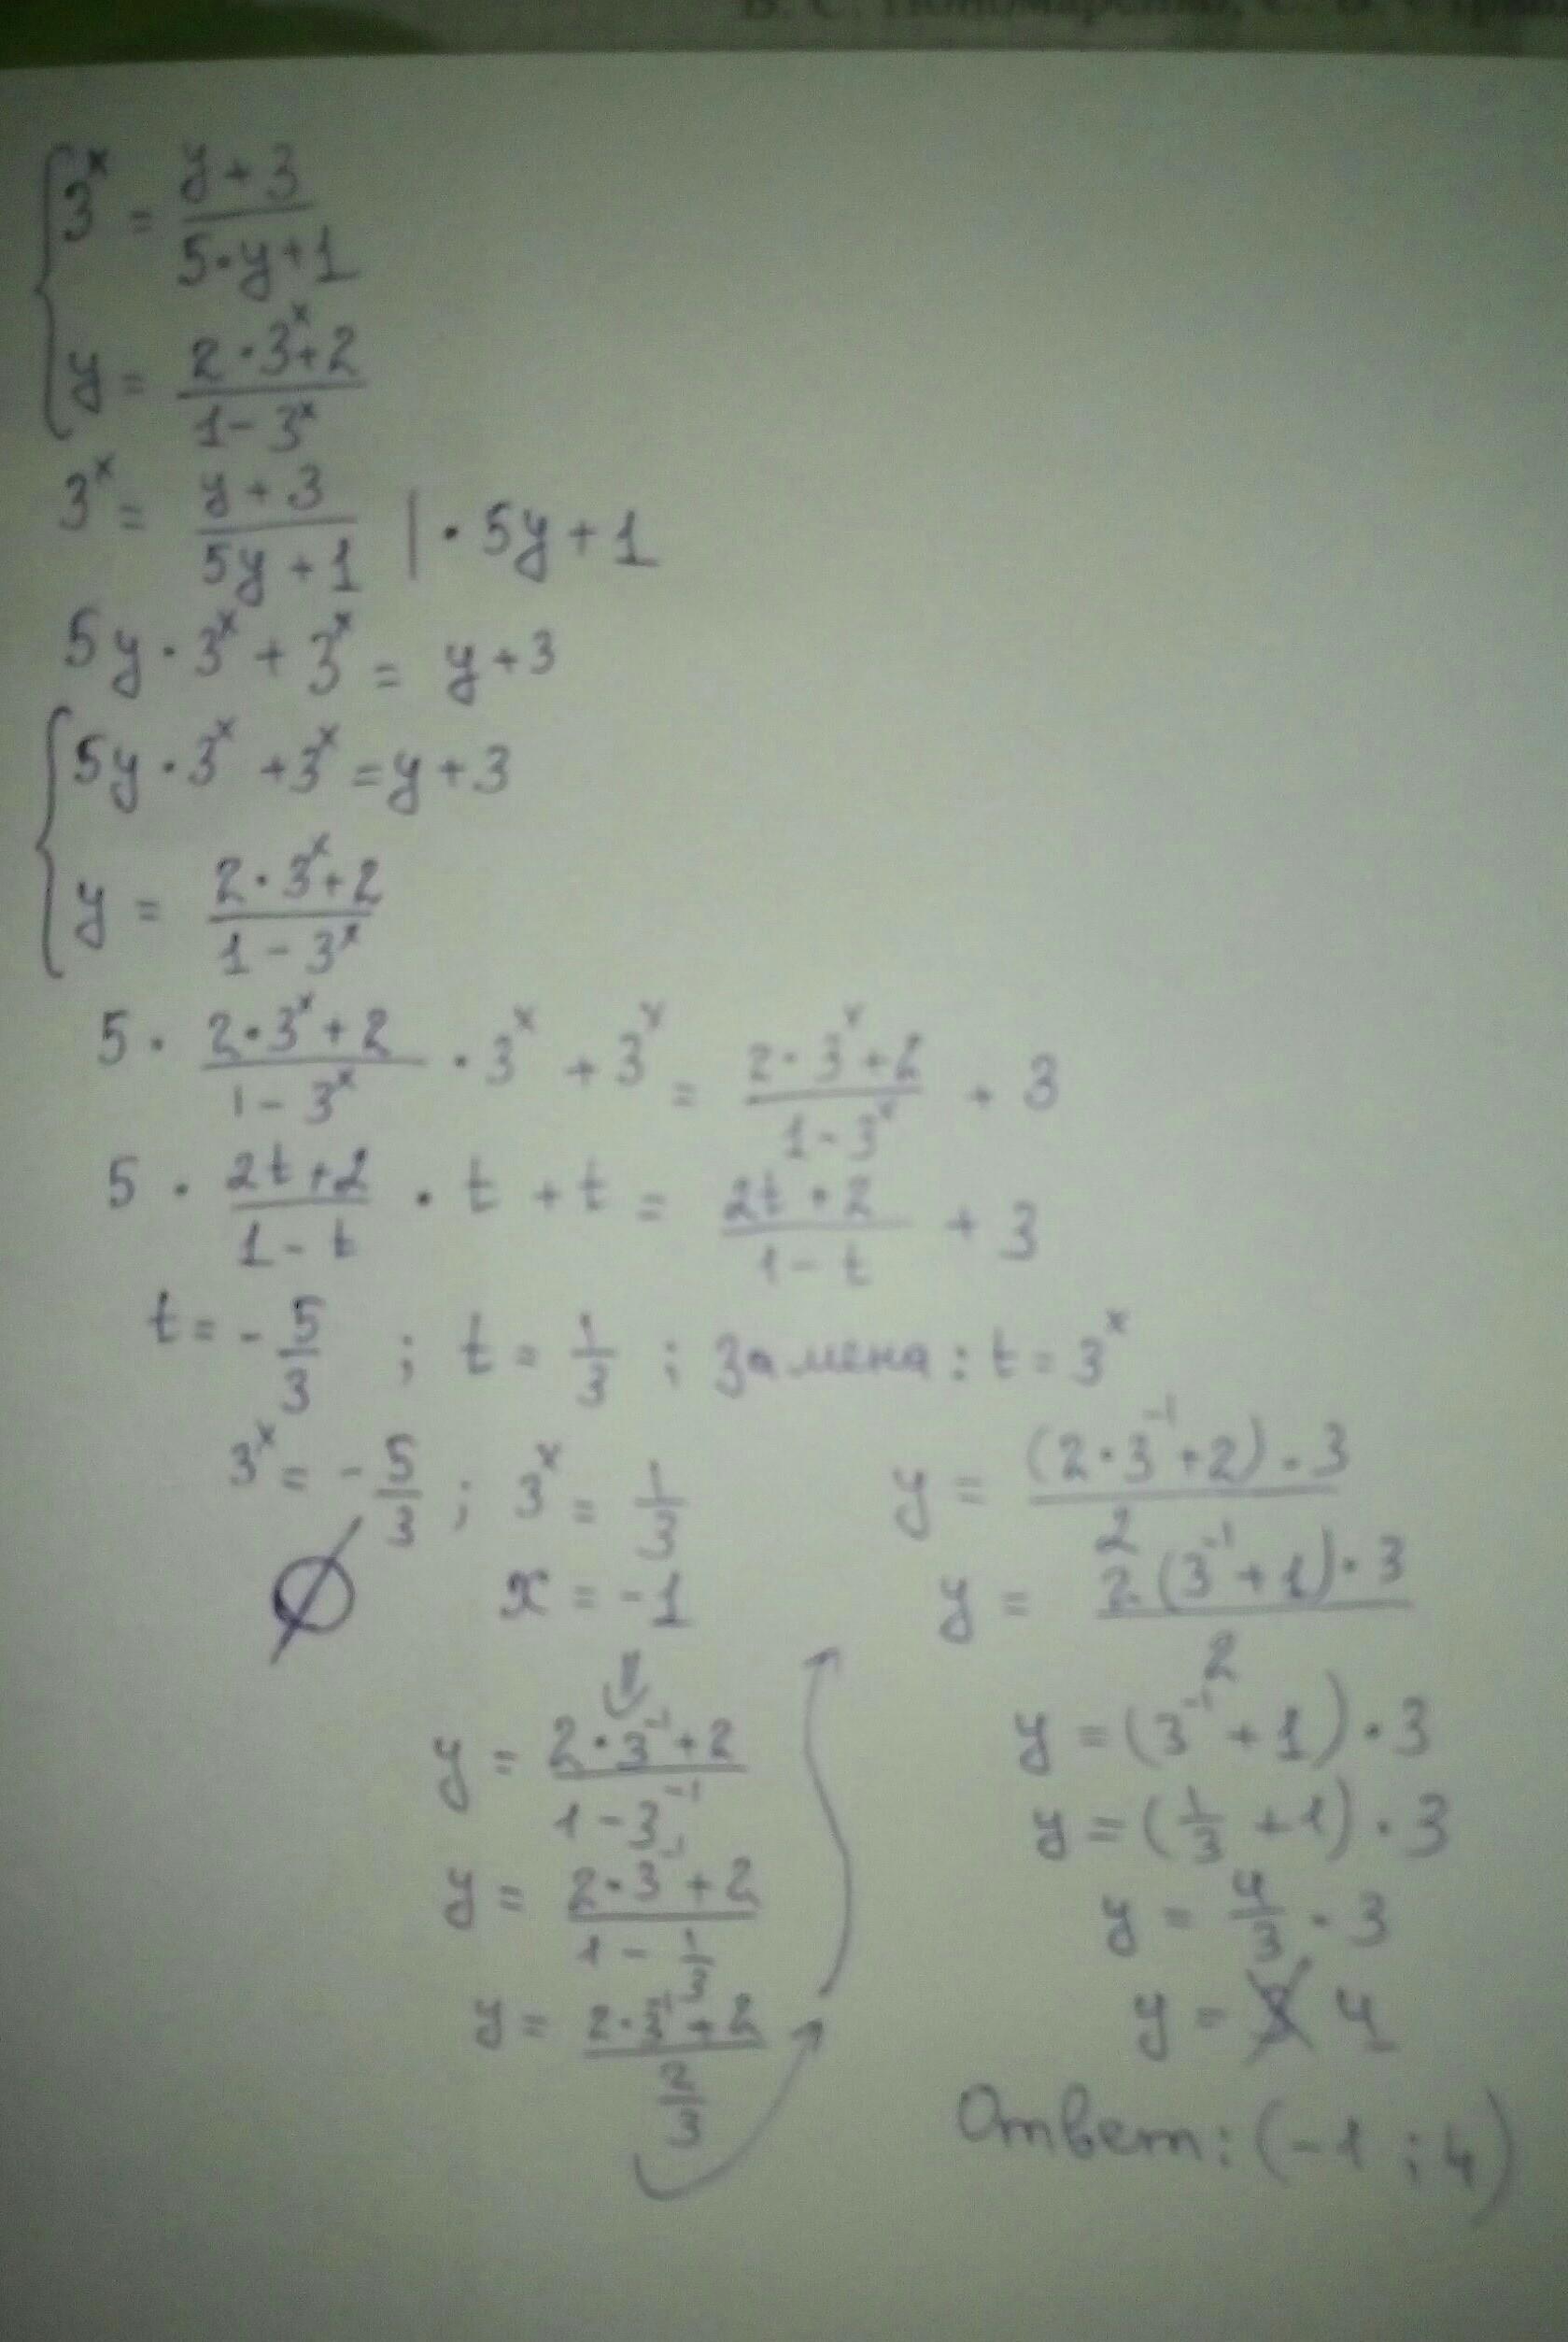 3^x = (y+3)/(5·y+1)
y = (2·3^x+2)/(1-3^x)
3^x = (y+3)/(5y+1) | · 5y+1
5y·3^x + 3^x = y+3
5y·3^x + 3^x = y+3
y = (2·3^x+2)/(1-3^x)
5 · (2·3^x+2)/(1-3^x) · 3^x + 3^x = (2·3^x+2)/(1-3^x) + 3
5 · (2t+2)/(1-t) · t + t = (2t+2)/(1-t) + 3
t = -5/3 ; t = 1/3 ; Замена: t = 3^x
3^x = -5/3 ; 3^x = 1/3
∅ x = -1
y = (2·3^-1+2)/(1-3^-1)
y = (2·3^-1+2)/(1-1/3)
y = (2·3^-1+2)/(2/3)
y = ((2·3^-1+2)·3)/2
y = (2(3^-1+1)·3)/2
y = (3^-1+1)·3
y = (1/3+1)·3
y = 4/3·3
y = 4
Ответ: (-1;4)